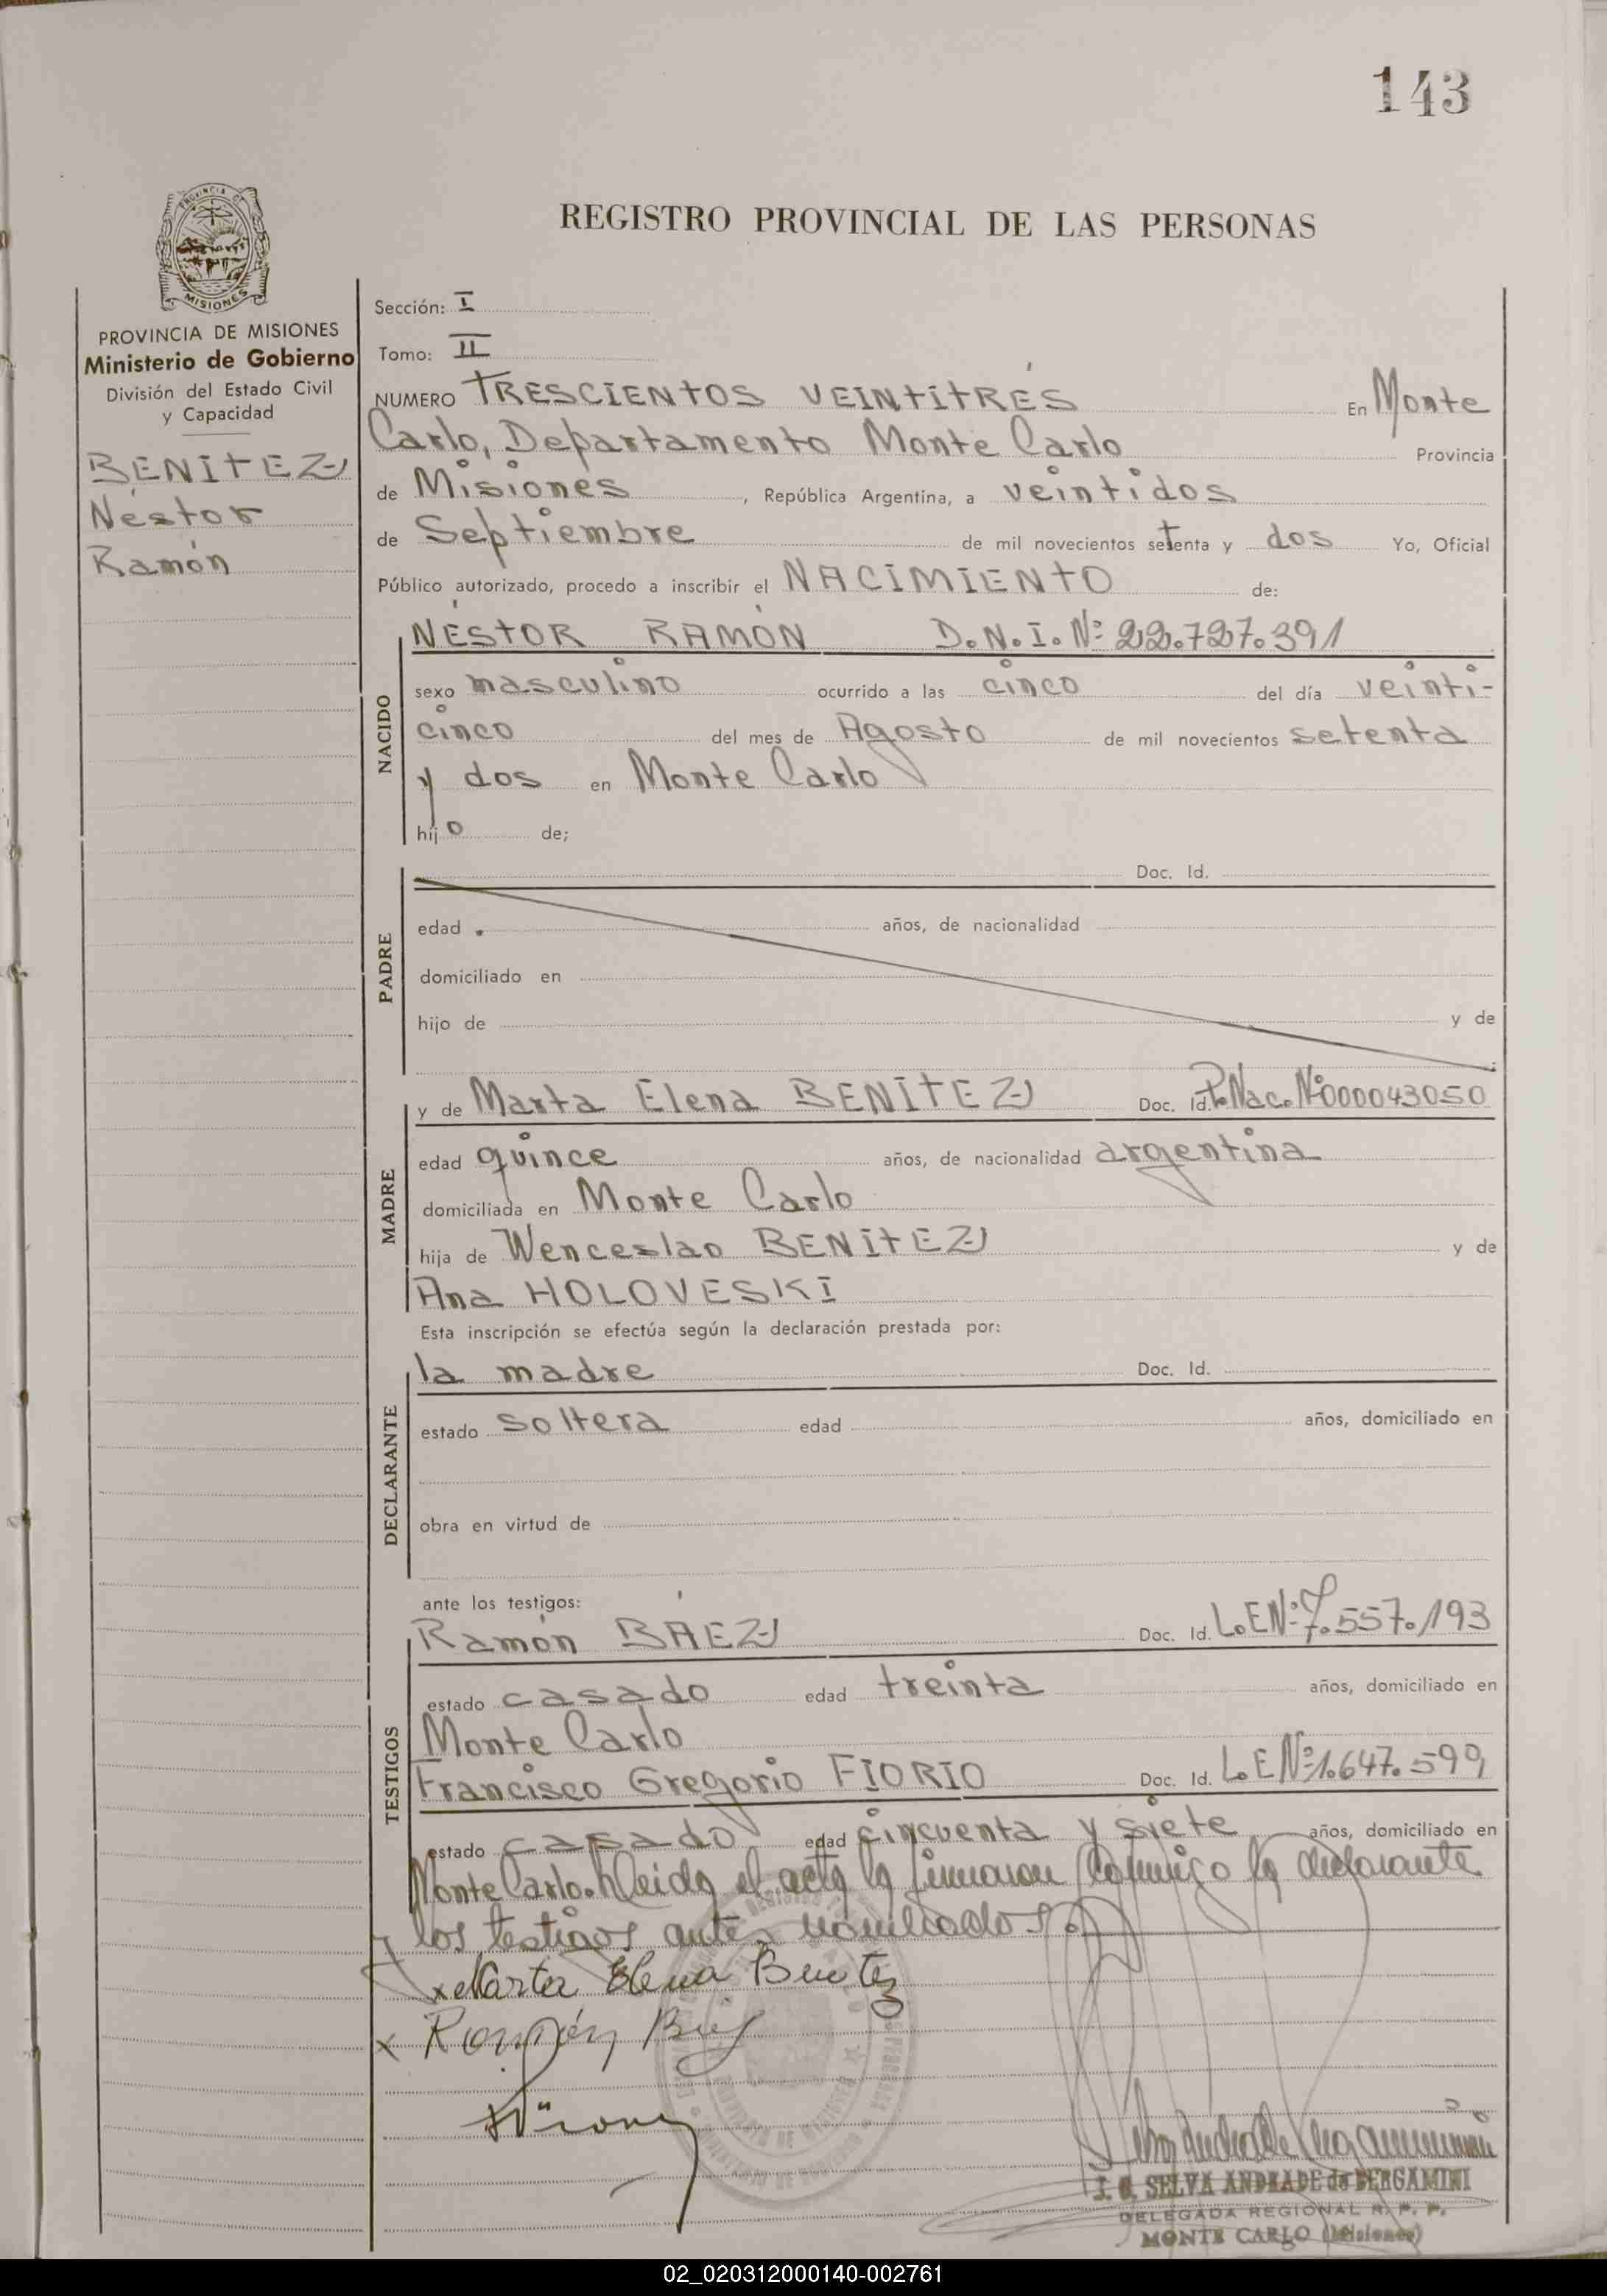 143
PROVINCIA DE
MISIONES
REGISTRO PROVINCIAL DE LAS PERSONAS
PROVINCIA DE MISIONES
Ministerio de Gobierno
División del Estado Civil
y Capacidad
BENITEZ
Néstor
Ramón
Sección: I
Tomo: II
NUMERO TRESCIENTOS VEINTITRÉS En Monte
Carlo, Departamento Monte Carlo Provincia
de Misiones, República Argentina, a veintidos
de Septiembre de mil novecientos setenta y dos Yo, Oficial
Público autorizado, procedo a inscribir el NACIMIENTO de:
NACIDO
NÉSTOR RAMÓN D.N.I. Nº 22.727.391
sexo masculino ocurrido a las cinco del día veinti-
cinco del mes de Agosto de mil novecientos setenta
y dos en Monte Carlo
hijo de;
PADRE
Doc. Id.
edad años, de nacionalidad
domiciliado en
hijo de y de
MADRE
y de Marta Elena BENITEZ Doc. Id. P. Nac. Nº000043050
edad quince años, de nacionalidad argentina
domiciliada en Monte Carlo
hija de Wenceslao BENITEZ y de
Ana HOLOVESKI
Esta inscripción se efectúa según la declaración prestada por:
DECLARANTE
la madre Doc. Id.
estado soltera edad años, domiciliado en
obra en virtud de
ante los testigos:
TESTIGOS
Ramón BÁEZ Doc. Id. L.E Nº 7.557.193
estado casado edad treinta años, domiciliado en
Monte Carlo
Francisco Gregorio FIORIO Doc. Id. L.E Nº 1.647.599
estado casado edad cincuenta y siete años, domiciliado en
Monte Carlo. Leida el acta la firmaron conmigo la declarante
y los testigos antes nombrados.
x Marta Elena Benitez
x Ramón Báez
S. G. SELVA ANDRADE de BERGAMINI
DELEGADA REGIONAL R. P. P.
MONTE CARLO (Misiones)
02_020312000140-002761